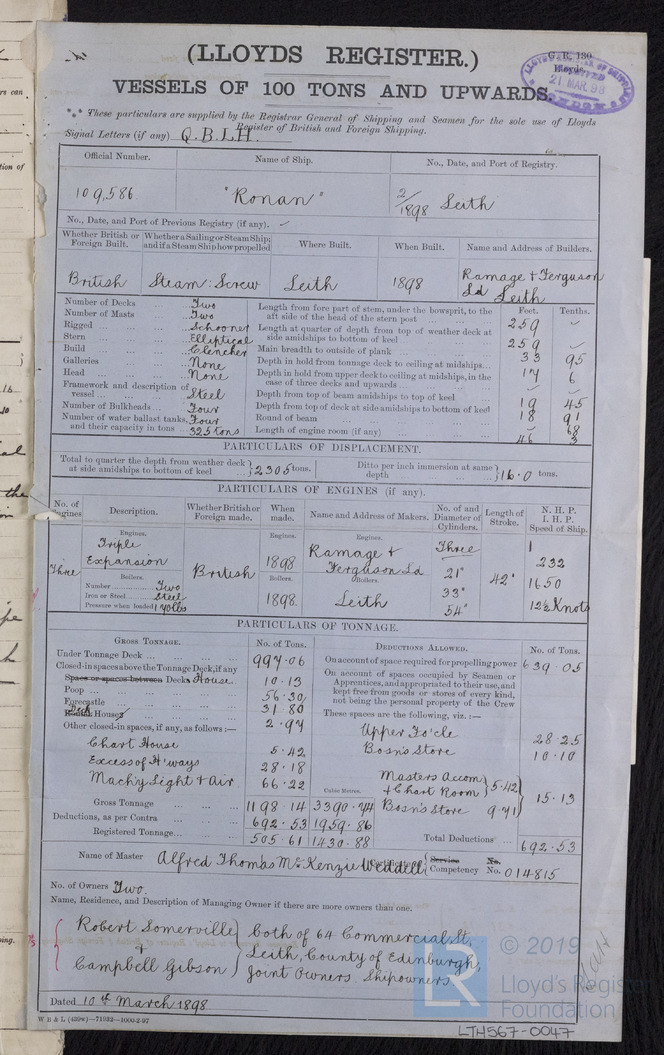 (LLOYDS REGISTER.)
G. R. 130
Lloyds.
21 MAR. 98
VESSELS OF 100 TONS AND UPWARDS.
*** These particulars are supplied by the Registrar General of Shipping and Seamen for the sole use of Lloyds
Register of British and Foreign Shipping.
Signal Letters (if any) Q.B.L.H.
Official Number. Name of Ship. No., Date, and Port of Registry.
109,586 "Ronan" 2/1898 Leith
No., Date, and Port of Previous Registry (if any).
Whether British or Foreign Built. Whether a Sailing or Steam Ship; and if a Steam Ship how propelled Where Built. When Built. Name and Address of Builders.
British Steam: Screw Leith 1898 Ramage & Ferguson Ld Leith
Feet. Tenths.
Number of Decks Two
Number of Masts Two
Rigged Schooner
Stern Elliptical
Build Clencher
Galleries None
Head None
Framework and description of vessel Steel
Number of Bulkheads Four
Number of water ballast tanks, and their capacity in tons Four 325 tons
Length from fore part of stem, under the bowsprit, to the aft side of the head of the stern post 259
Length at quarter of depth from top of weather deck at side amidships to bottom of keel 259
Main breadth to outside of plank 33 95
Depth in hold from tonnage deck to ceiling at midships 17 6
Depth in hold from upper deck to ceiling at midships, in the case of three decks and upwards
Depth from top of beam amidships to top of keel 19 45
Depth from top of deck at side amidships to bottom of keel 18 91
Round of beam 68
Length of engine room (if any) 46 3
PARTICULARS OF DISPLACEMENT.
Total to quarter the depth from weather deck at side amidships to bottom of keel 2305 tons. Ditto per inch immersion at same depth 16.0 tons.
PARTICULARS OF ENGINES (if any).
No. of Engines. Description. Whether British or Foreign made. When made. Name and Address of Makers. No. of and Diameter of Cylinders. Length of Stroke. N. H. P. I. H. P. Speed of Ship.
Engines. Engines. Engines.
Three Triple Expansion British 1898 Ramage & Ferguson Ld Three 21" 33" 54" 42" 232 1650 12½ Knots
Boilers. Boilers. Boilers.
Number Two
Iron or Steel Steel
Pressure when loaded 170 lbs
1898 Leith
PARTICULARS OF TONNAGE.
GROSS TONNAGE. No. of Tons. DEDUCTIONS ALLOWED. No. of Tons.
Under Tonnage Deck 997.06
Closed-in spaces above the Tonnage Deck, if any
Space or spaces between Decks House 10.13
Poop 56.30
Forecastle 31.80
Deck Houses 2.97
Other closed-in spaces, if any, as follows:—
Chart House 5.42
Excess of H'ways 28.18
Mach'y Light & Air 66.22
Cubic Metres.
Gross Tonnage 1198.14 3390.74
Deductions, as per Contra 692.53 1959.86
Registered Tonnage 505.61 1430.88
On account of space required for propelling power 639.05
On account of spaces occupied by Seamen or Apprentices, and appropriated to their use, and kept free from goods or stores of every kind, not being the personal property of the Crew
These spaces are the following, viz.:—
Upper Fo'cle 28.25
Bosn's Store 10.10
Masters Accom & Chart Room 5.42
Bosn's Store 9.71
15.13
Total Deductions 692.53
Name of Master Alfred Thomas McKenzie Weddell Certificate of Service Competency No. No. 014815
No. of Owners Two.
Name, Residence, and Description of Managing Owner if there are more owners than one.
Robert Somerville & Campbell Gibson
both of 64 Commercial St,
Leith, County of Edinburgh,
Joint Owners. Shipowners
Dated 10th March 1898
W B & L (439w)—71932—1000-2-97
© 2019
Lloyd's Register
Foundation
LTH567-0047